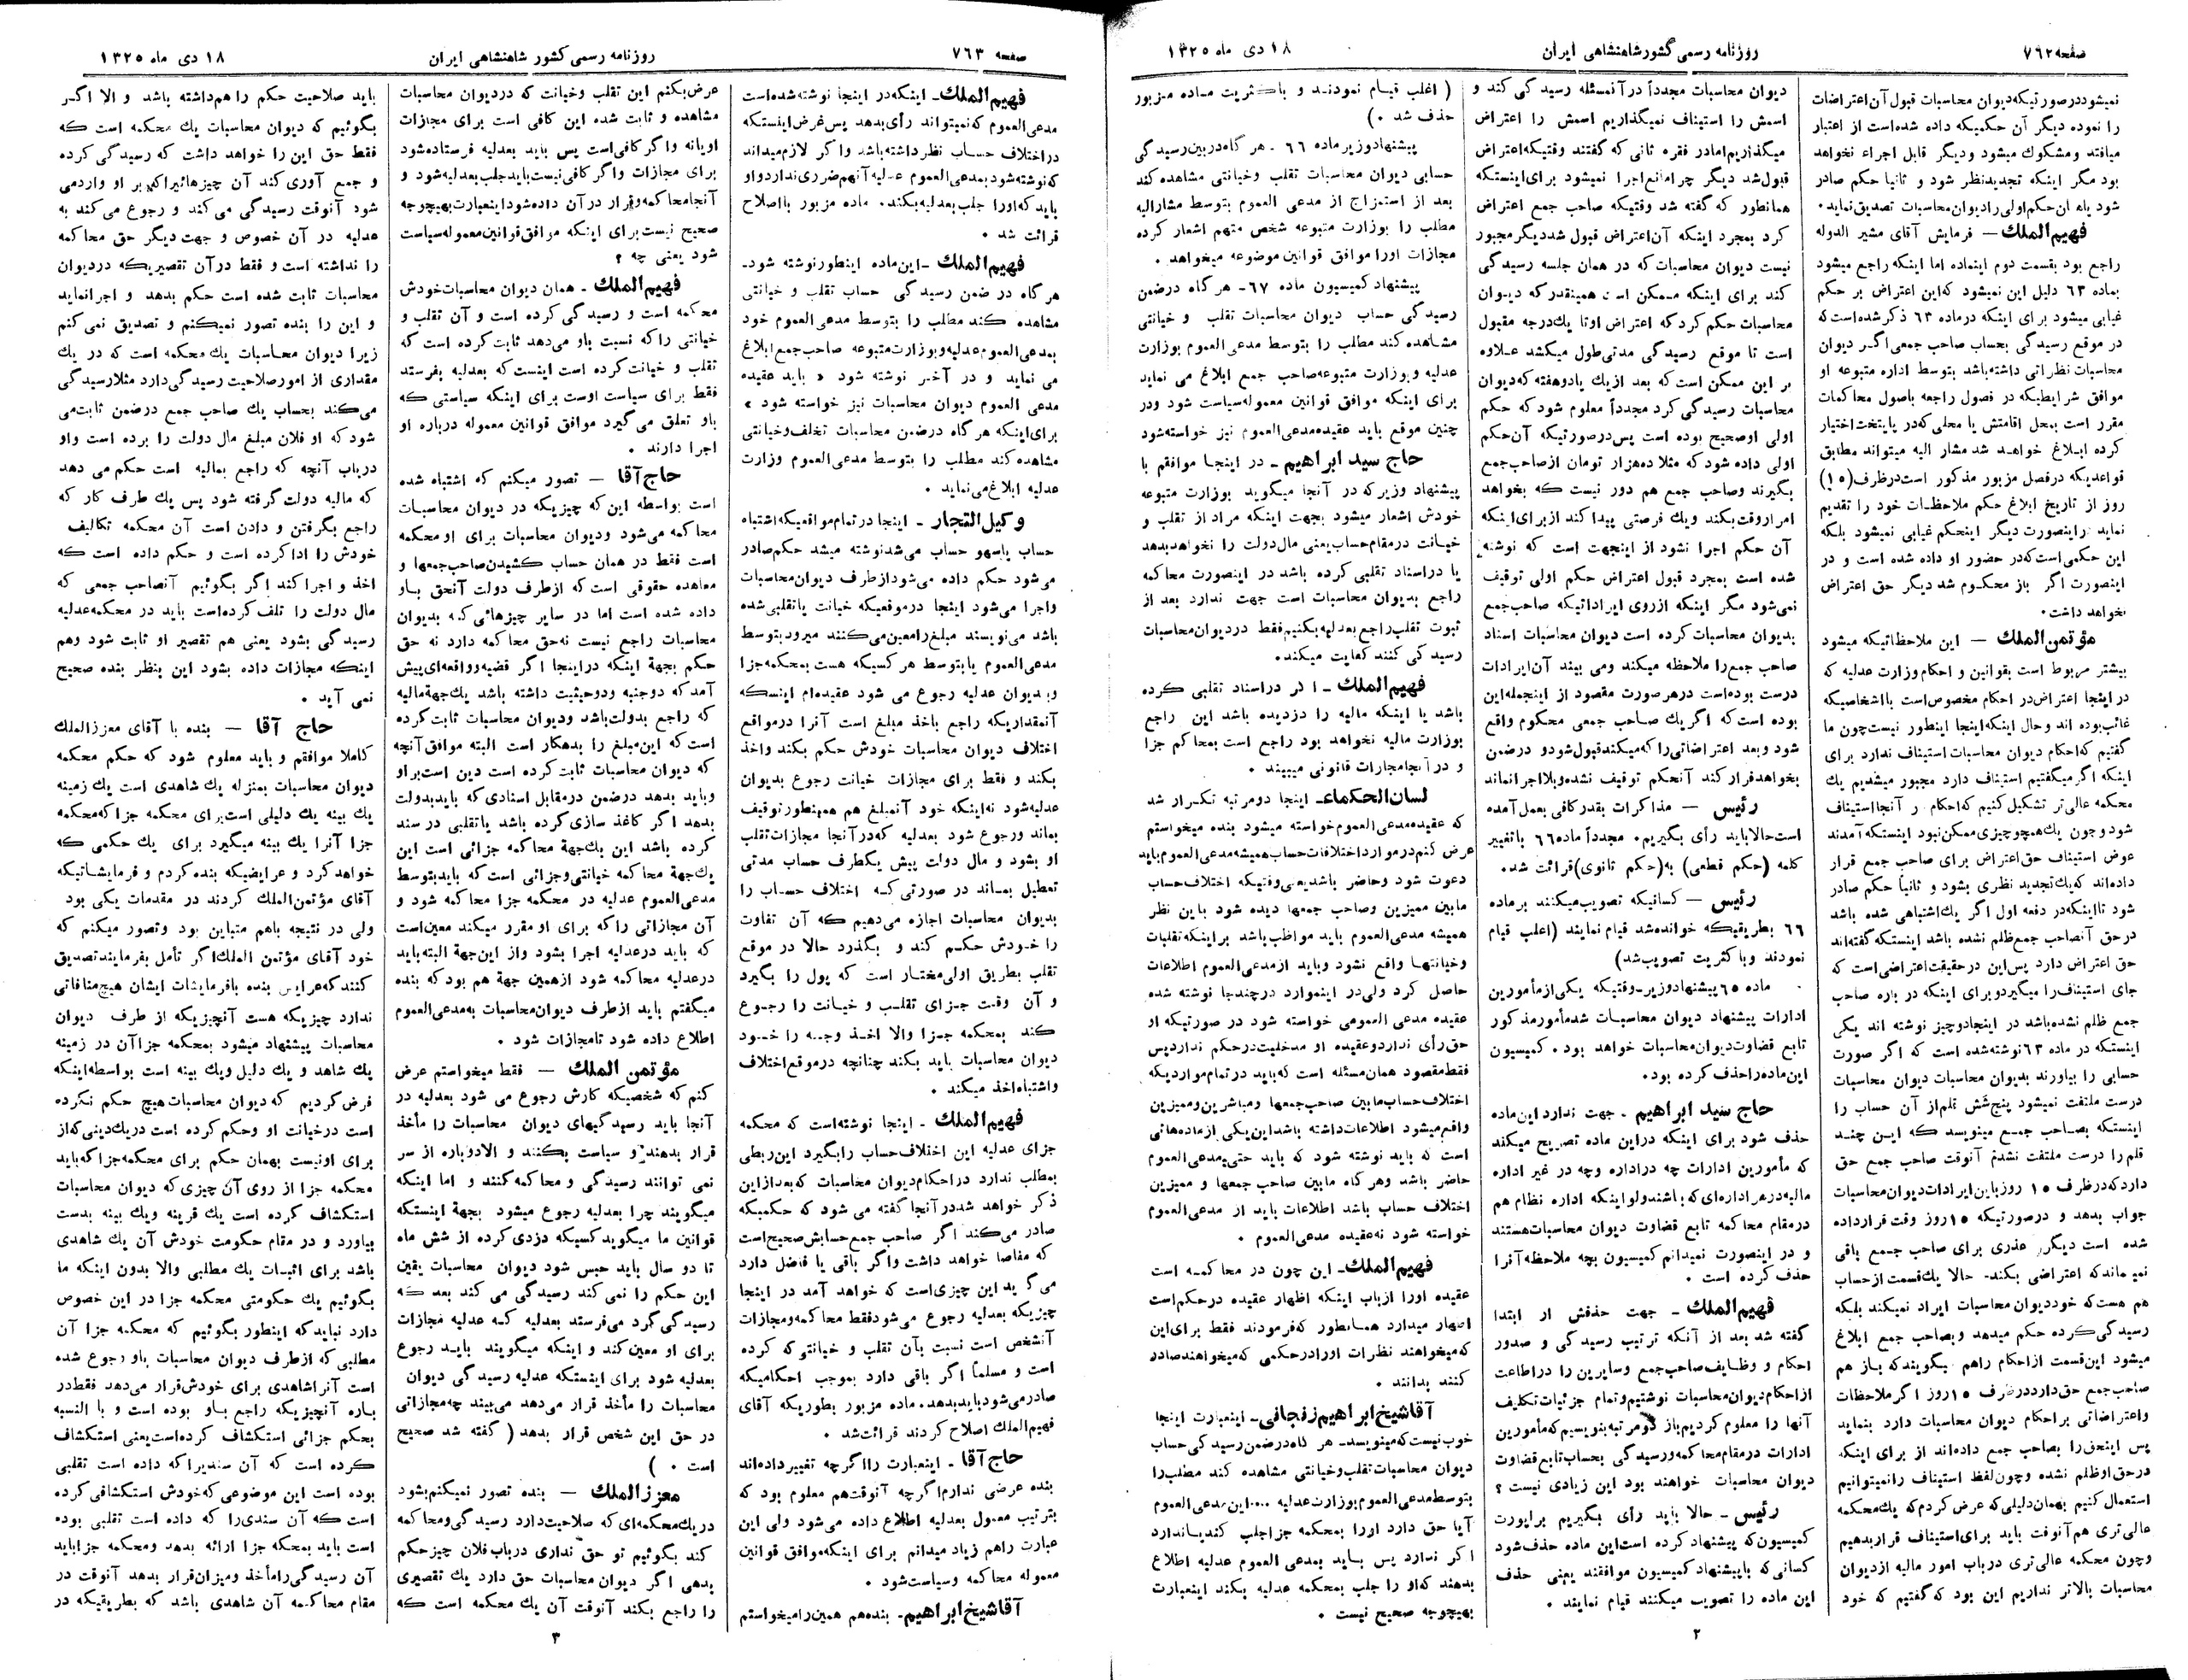 صفحه ۷۶۲
روزنامه رسمی کشور شاهنشاهی ایران
۱۸ دی ماه ۱۳۲۵
نمیشود در صورتیکه دیوان محاسبات قبول آن اعتراضات
را نموده دیگر آن حکمیکه داده شده است از اعتبار
میافتد و مشکوك میشود و دیگر قابل اجراء نخواهد
بود مگر اینکه تجدید نظر شود و ثانیا حکم صادر
شود یا همان حکم اولی را دیوان محاسبات تصدیق نماید.
فهیم‌الملك — فرمایش آقای مشیر الدوله
راجع بود بقسمت دوم اینماده اما اینکه راجع میشود
بماده ۶۳ دلیل این نمیشود که این اعتراض بر حکم
غیابی میشود برای اینکه در ماده ۶۳ ذکر شده است که
در موقع رسیدگی بحساب صاحب جمعی اگر دیوان
محاسبات نظراتی داشته باشد بتوسط اداره متبوعه او
موافق شرایطیکه در فصول راجعه باصول محاکمات
مقرر است بمحل اقامتش یا محلی که در پایتخت اختیار
کرده ابلاغ خواهد شد مشار الیه میتواند مطابق
قواعدیکه در فصل مزبور مذکور است در ظرف (۱۵)
روز از تاریخ ابلاغ حکم ملاحظات خود را تقدیم
نماید در اینصورت دیگر اینحکم غیابی نمیشود بلکه
این حکمی است که در حضور او داده شده است و در
اینصورت اگر باز محکوم شد دیگر حق اعتراض
نخواهد داشت.
مؤتمن‌الملك — این ملاحظاتیکه میشود
بیشتر مربوط است بقوانین و احکام وزارت عدلیه که
در اینجا اعتراض در احکام مخصوص است با اشخاصیکه
غائب بوده اند و حال اینکه اینجا اینطور نیست چون ما
گفتیم که احکام دیوان محاسبات استیناف ندارد برای
اینکه اگر میگفتیم استیناف دارد مجبور میشدیم یك
محکمه عالی‌تر تشکیل کنیم که احکام در آنجا استیناف
شود و چون یك همچو چیزی ممکن نبود اینستکه آمدند
عوض استیناف حق اعتراض برای صاحب جمع قرار
داده‌اند که یك تجدید نظری بشود و ثانیا حکم صادر
شود تا اینکه در دفعه اول اگر یك اشتباهی شده باشد
در حق آنصاحب جمع ظلم نشده باشد اینستکه گفته‌اند
حق اعتراض دارد پس این در حقیقت اعتراضی است که
جای استیناف را میگیرد و برای اینکه در باره صاحب
جمع ظلم نشده باشد در اینجا دو چیز نوشته اند یکی
اینستکه در ماده ۶۳ نوشته شده است که اگر صورت
حسابی را بیاورند بدیوان محاسبات دیوان محاسبات
درست ملتفت نمیشود پنج شش قلم از آن حساب را
اینستکه بصاحب جمع مینویسد که این چند
قلم را درست ملتفت نشدم آنوقت صاحب جمع حق
دارد که در ظرف ۱۵ روز باین ایرادات دیوان محاسبات
جواب بدهد و در صورتیکه ۱۵ روز وقت قرار داده
شده است دیگر عذری برای صاحب جمع باقی
نمیماند که اعتراضی بکند- حالا یك قسمت از حساب
هم هست که خود دیوان محاسبات ایراد نمیکند بلکه
رسیدگی کرده حکم میدهد و بصاحب جمع ابلاغ
میشود این قسمت از احکام راهم بگویند که باز هم
صاحب جمع حق دارد در ظرف ۱۵ روز اگر ملاحظات
و اعتراضاتی بر احکام دیوان محاسبات دارد بنماید
پس اینحق را بصاحب جمع داده‌اند از برای اینکه
در حق او ظلم نشده و چون لفظ استیناف را نمیتوانیم
استعمال کنیم بهمان دلیلی که عرض کردم که یك محکمه
عالی‌تری هم آنوقت باید برای استیناف قرار بدهیم
و چون محکمه عالی‌تری در باب امور مالیه از دیوان
محاسبات بالاتر نداریم این بود که گفتیم که خود
دیوان محاسبات مجدداً در آنمسئله رسیدگی کند و
اسمش را استیناف نمیگذاریم اسمش را اعتراض
میگذاریم اما در فقره ثانی که گفتند وقتیکه اعتراض
قبول شد دیگر چرا مانع اجرا نمیشود برای اینستکه
همانطور که گفته شد وقتیکه صاحب جمع اعتراض
کرد بمجرد اینکه آن اعتراض قبول شد دیگر مجبور
نیست دیوان محاسبات که در همان جلسه رسیدگی
کند برای اینکه ممکن است همینقدر که دیوان
محاسبات حکم کرد که اعتراض او تا یك درجه مقبول
است تا موقع رسیدگی مدتی طول میکشد علاوه
بر این ممکن است که بعد از یك یا دو هفته که دیوان
محاسبات رسیدگی کرد مجدداً معلوم شود که حکم
اولی او صحیح بوده است پس در صورتیکه آن حکم
اولی داده شود که مثلا ده هزار تومان از صاحب جمع
بگیرند و صاحب جمع هم دور نیست که بخواهد
امرار وقت بکند و یك فرصتی پیدا کند از برای اینکه
آن حکم اجرا نشود از اینجهت است که نوشته
شده است بمجرد قبول اعتراض حکم اولی توقیف
نمی‌شود مگر اینکه از روی ایراداتیکه صاحب جمع
بدیوان محاسبات کرده است دیوان محاسبات اسناد
صاحب جمع را ملاحظه میکند و می بیند آن ایرادات
درست بوده است در هر صورت مقصود از اینجمله این
بوده است که اگر یك صاحب جمعی محکوم واقع
شود و بعد اعتراضاتی را که میکند قبول شود و در ضمن
بخواهد فرار کند آنحکم توقیف نشده و بلا اجرا نماند
رئیس — مذاکرات بقدر کافی بعمل آمده
است حالا باید رأی بگیریم. مجدداً ماده ۶۶ با تغییر
کلمه (حکم قطعی) به (حکم ثانوی) قرائت شد.
رئیس — کسانیکه تصویب میکنند بر ماده
۶۶ بطریقیکه خوانده شد قیام نمایند (اغلب قیام
نمودند و با کثریت تصویب شد)
ماده ۶۵ پیشنهاد وزیر- وقتیکه یکی از مأمورین
ادارات پیشنهاد دیوان محاسبات شد مأمور مذکور
تابع قضاوت دیوان محاسبات خواهد بود. کمیسیون
این ماده را حذف کرده بود.
حاج سید ابراهیم - جهت ندارد این ماده
حذف شود برای اینکه در این ماده تصریح میکند
که مأمورین ادارات چه در اداره و چه در غیر اداره
مالیه در هر اداره‌ای که باشند ولو اینکه اداره نظام هم
در مقام محاکمه تابع قضاوت دیوان محاسبات هستند
و در اینصورت نمیدانم کمیسیون بچه ملاحظه آنرا
حذف کرده است .
فهیم‌الملك - جهت حذفش از ابتدا
گفته شد بعد از آنکه ترتیب رسیدگی و صدور
احکام و وظایف صاحب جمع و سایرین را در اطاعت
از احکام دیوان محاسبات نوشتیم و تمام جزئیات تکلیف
آنها را معلوم کردیم باز دو مرتبه بنویسیم که مأمورین
ادارات در مقام محاکمه و رسیدگی بحساب تابع قضاوت
دیوان محاسبات خواهند بود این زیادی نیست ؟
رئیس - حالا باید رأی بگیریم براپورت
کمیسیون که پیشنهاد کرده است این ماده حذف شود
کسانی که با پیشنهاد کمیسیون موافقند یعنی حذف
این ماده را تصویب میکنند قیام نمایند .
( اغلب قیام نمودند و باکثریت ماده مزبور
حذف شد .)
پیشنهاد وزیر ماده ۶۶ - هر گاه در بین رسیدگی
حسابی دیوان محاسبات تقلب و خیانتی مشاهده کند
بعد از استمزاج از مدعی العموم بتوسط مشارالیه
مطلب را بوزارت متبوعه شخص متهم اشعار کرده
مجازات اورا موافق قوانین موضوعه میخواهد .
پیشنهاد کمیسیون ماده ۶۷- هر گاه در ضمن
رسیدگی حساب دیوان محاسبات تقلب و خیانتی
مشاهده کند مطلب را بتوسط مدعی العموم بوزارت
عدلیه و بوزارت متبوعه صاحب جمع ابلاغ می نماید
برای اینکه موافق قوانین معموله سیاست شود و در
چنین موقع باید عقیده مدعی العموم نیز خواسته شود
حاج سید ابراهیم - در اینجا موافقم با
پیشنهاد وزیر که در آنجا میگوید بوزارت متبوعه
خودش اشعار میشود بجهت اینکه مراد از تقلب و
خیانت در مقام حساب یعنی مال دولت را نخواهد بدهد
یا در اسناد تقلبی کرده باشد در اینصورت محاکمه
راجع بدیوان محاسبات است جهت ندارد بعد از
ثبوت تقلب راجع بعدلیه بکنیم فقط در دیوان محاسبات
رسیدگی کنند کفایت میکند.
فهیم‌الملك - اگر در اسناد تقلبی کرده
باشد یا اینکه مالیه را دزدیده باشد این راجع
بوزارت مالیه نخواهد بود راجع است بمحاکم جزا
و در آنجا مجازات قانونی میبیند .
لسان‌الحکماء- اینجا دو مرتبه تکرار شد
که عقیده مدعی العموم خواسته میشود بنده میخواستم
عرض کنم در موارد اختلافات حساب همیشه مدعی العموم باید
دعوت شود و حاضر باشد یعنی وقتیکه اختلاف حساب
مابین ممیزین و صاحب جمعها دیده شود باین نظر
همیشه مدعی العموم باید مواظب باشد بر اینکه تقلبات
و خیانتها واقع نشود و باید از مدعی العموم اطلاعات
حاصل کرد ولی در اینموارد در چند جا نوشته شده
عقیده مدعی العمومی خواسته شود در صورتیکه او
حق رأی ندارد و عقیده او مدخلیت در حکم ندارد پس
فقط مقصود همان مسئله است که باید در تمام مواردیکه
اختلاف حساب مابین صاحب جمعها و مباشرین و ممیزین
واقع میشود اطلاعات داشته باشد این یکی از ماده هائی
است که باید نوشته شود که باید حتی مدعی العموم
حاضر باشد و هر گاه مابین صاحب جمعها و ممیزین
اختلاف حساب باشد اطلاعات باید از مدعی العموم
خواسته شود نه عقیده مدعی العموم .
فهیم‌الملك- این چون در محاکمه است
عقیده اورا از باب اینکه اظهار عقیده در حکم است
اظهار میدارد همانطور که فرمودند فقط برای این
که میخواهند نظرات او را در حکمی که میخواهند صادر
کنند بدانند .
آقا شیخ ابراهیم زنجانی- اینعبارت اینجا
خوب نیست که مینویسد- هر گاه در ضمن رسیدگی حساب
دیوان محاسبات تقلب و خیانتی مشاهده کند مطلب را
بتوسط مدعی العموم بوزارت عدلیه .... این مدعی العموم
آیا حق دارد اورا بمحکمه جزا جلب کند یا ندارد
اگر ندارد پس باید بمدعی العموم عدلیه اطلاع
بدهند که او را جلب بمحکمه عدلیه بکند اینعبارت
بهیچوجه صحیح نیست .
۲
صفحه ۷۶۳
روزنامه رسمی کشور شاهنشاهی ایران
۱۸ دی ماه ۱۳۲۵
فهیم‌الملك- اینکه در اینجا نوشته شده است
مدعی العموم که نمیتواند رأی بدهد پس غرض اینستکه
در اختلاف حساب نظر داشته باشد و اگر لازم میداند
که نوشته شود بمدعی العموم عدلیه آنهم ضرری ندارد و او
باید که اورا جلب بعدلیه بکند. ماده مزبور بااصلاح
قرائت شد .
فهیم‌الملك -این ماده اینطور نوشته شود-
هر گاه در ضمن رسیدگی حساب تقلب و خیانتی
مشاهده کند مطلب را بتوسط مدعی العموم خود
بمدعی العموم عدلیه و بوزارت متبوعه صاحب جمع ابلاغ
می نماید و در آخر نوشته شود « باید عقیده
مدعی العموم دیوان محاسبات نیز خواسته شود »
برای اینکه هر گاه در ضمن محاسبات تخلف و خیانتی
مشاهده کند مطلب را بتوسط مدعی العموم وزارت
عدلیه ابلاغ می نماید .
وکیل‌التجار - اینجا در تمام مواقعیکه اشتباه
حساب یا سهو حساب می شد نوشته میشد حکم صادر
می شود حکم داده می شود از طرف دیوان محاسبات
و اجرا می شود اینجا در موقعیکه خیانت یا تقلبی شده
باشد می نویسند مبلغ را معین می کنند میرود بتوسط
مدعی العموم یا بتوسط هر کسیکه هست بمحکمه جزا
و بدیوان عدلیه رجوع می شود عقیده ام اینستکه
آنمقداریکه راجع باخذ مبلغ است آنرا در مواقع
اختلاف دیوان محاسبات خودش حکم بکند و اخذ
بکند و فقط برای مجازات خیانت رجوع بدیوان
عدلیه شود نه اینکه خود آنمبلغ هم همینطور توقیف
بماند و رجوع شود بعدلیه که در آنجا مجازات تقلب
او بشود و مال دولت پیش یکطرف حساب مدتی
تعطیل بماند در صورتی که اختلاف حساب را
بدیوان محاسبات اجازه می دهیم که آن تفاوت
را خودش حکم کند و بگذرد حالا در موقع
تقلب بطریق اولی مختار است که پول را بگیرد
و آن وقت جزای تقلب و خیانت را رجوع
کند بمحکمه جزا والا اخذ وجه را خود
دیوان محاسبات باید بکند چنانچه در موقع اختلاف
و اشتباه اخذ میکند .
فهیم‌الملك - اینجا نوشته است که محکمه
جزای عدلیه این اختلاف حساب را بگیرد این ربطی
بمطلب ندارد در احکام دیوان محاسبات که بعد از این
ذکر خواهد شد در آنجا گفته می شود که حکمیکه
صادر می کند اگر صاحب جمع حسابش صحیح است
که مفاصا خواهد داشت و اگر باقی یا فاضل دارد
می گوید این چیزی است که خواهد آمد در اینجا
چیزیکه بعدلیه رجوع می شود فقط محاکمه و مجازات
آنشخص است نسبت بآن تقلب و خیانتی که کرده
است و مسلماً اگر باقی دارد بموجب احکامیکه
صادر می شود باید بدهد. ماده مزبور بطوریکه آقای
فهیم‌الملك اصلاح کردند قرائت شد .
حاج آقا - اینعبارت را اگر چه تغییر داده‌اند
بنده عرضی ندارم اگر چه آنوقت هم معلوم بود که
بترتیب معمول بعدلیه اطلاع داده می شود ولی این
عبارت راهم زیاد میدانم برای اینکه موافق قوانین
معموله محاکمه و سیاست شود .
آقا شیخ ابراهیم- بنده هم همین را میخواستم
عرض بکنم این تقلب و خیانت که در دیوان محاسبات
مشاهده و ثابت شده این کافی است برای مجازات
او یا نه و اگر کافی است پس باید بعدلیه فرستاده شود
برای مجازات و اگر کافی نیست باید جلب بعدلیه شود و
آنجا محاکمه و قرار در آن داده شود اینعبارت بهیچوجه
صحیح نیست برای اینکه موافق قوانین معموله سیاست
شود یعنی چه ؟
فهیم‌الملك - همان دیوان محاسبات خودش
محکمه است و رسیدگی کرده است و آن تقلب و
خیانتی را که نسبت باو می‌دهد ثابت کرده است که
تقلب و خیانت کرده است اینست که بعدلیه بفرستد
فقط برای سیاست اوست برای اینکه سیاستی که
باو تعلق می گیرد موافق قوانین معموله درباره او
اجرا دارند .
حاج آقا — تصور میکنم که اشتباه شده
است بواسطه این که چیزیکه در دیوان محاسبات
محاکمه می شود و دیوان محاسبات برای او محکمه
است فقط در همان حساب کشیدن صاحب جمعها و
معاهده حقوقی است که از طرف دولت آنحق باو
داده شده است اما در سایر چیزهائی که بدیوان
محاسبات راجع نیست نه حق محاکمه دارد نه حق
حکم بجهة اینکه در اینجا اگر قضیه و واقعه‌ای پیش
آمد که دو جنبه و دو حیثیت داشته باشد یك جهة مالیه
که راجع بدولت باشد و دیوان محاسبات ثابت کرده
است که این مبلغ را بدهکار است البته موافق آنچه
که دیوان محاسبات ثابت کرده است دین است بر او
و باید بدهد در ضمن در مقابل اسنادی که باید بدولت
بدهد اگر کاغذ سازی کرده باشد یا تقلبی در سند
کرده باشد این یك جهة محاکمه جزائی است این
یك جهة محاکمه خیانتی و جزائی است که باید بتوسط
مدعی العموم عدلیه در محکمه جزا محاکمه شود و
آن مجازاتی را که برای او مقرر میکند معین است
که باید در عدلیه اجرا بشود و از این جهة البته باید
در عدلیه محاکمه شود از همین جهة هم بود که بنده
میگفتم باید از طرف دیوان محاسبات به مدعی العموم
اطلاع داده شود تا مجازات شود .
مؤتمن الملك — فقط میخواستم عرض
کنم که شخصیکه کارش رجوع می شود بعدلیه در
آنجا باید رسیدگیهای دیوان محاسبات را مأخذ
قرار بدهند و سیاست بکنند و الا دوباره از سر
نمی توانند رسیدگی و محاکمه کنند و اما اینکه
میگویند چرا بعدلیه رجوع میشود بجهة اینستکه
قوانین ما میگوید کسیکه دزدی کرده از شش ماه
تا دو سال باید حبس شود دیوان محاسبات یقین
این حکم را نمی کند رسیدگی می کند بعد که
رسیدگی کرد می فرستد بعدلیه که عدلیه مجازات
برای او معین کند و اینکه میگویند باید رجوع
بعدلیه شود برای اینستکه عدلیه رسیدگی دیوان
محاسبات را مأخذ قرار می دهد می بیند چه مجازاتی
در حق این شخص قرار بدهد ( گفته شد صحیح
است . )
معزز الملك — بنده تصور نمیکنم بشود
در یك محکمه‌ای که صلاحیت دارد رسیدگی و محاکمه
کند بگوئیم تو حق نداری در باب فلان چیز حکم
بدهی اگر دیوان محاسبات حق دارد یك تقصیری
را راجع بکند آنوقت آن یك محکمه است که
باید صلاحیت حکم را هم داشته باشد و الا اگر
بگوئیم که دیوان محاسبات یك محکمه است که
فقط حق این را خواهد داشت که رسیدگی کرده
و جمع آوری کند آن چیزهائیرا که بر او وارد می
شود آنوقت رسیدگی می کند و رجوع می کند به
عدلیه در آن خصوص و جهت دیگر حق محاکمه
را نداشته است و فقط در آن تقصیریکه در دیوان
محاسبات ثابت شده است حکم بدهد و اجرا نماید
و این را بنده تصور نمیکنم و تصدیق نمی کنم
زیرا دیوان محاسبات یك محکمه است که در یك
مقداری از امور صلاحیت رسیدگی دارد مثلا رسیدگی
می کند بحساب یك صاحب جمع در ضمن ثابت می
شود که او فلان مبلغ مال دولت را برده است و او
در باب آنچه که راجع بمالیه است حکم می دهد
که مالیه دولت گرفته شود پس یك طرف کار که
راجع بگرفتن و دادن است آن محکمه تکالیف
خودش را ادا کرده است و حکم داده است که
اخذ و اجرا کند اگر بگوئیم آنصاحب جمعی که
مال دولت را تلف کرده است باید در محکمه عدلیه
رسیدگی بشود یعنی هم تقصیر او ثابت شود و هم
اینکه مجازات داده بشود این بنظر بنده صحیح
نمی آید .
حاج آقا — بنده با آقای معزز الملك
کاملا موافقم و باید معلوم شود که حکم محکمه
دیوان محاسبات بمنزله یك شاهدی است یك زمینه
یك بینه یك دلیلی است برای محکمه جزا که محکمه
جزا آنرا یك بینه میگیرد برای یك حکمی که
خواهد کرد و عرایضیکه بنده کردم و فرمایشاتیکه
آقای مؤتمن الملك کردند در مقدمات یکی بود
ولی در نتیجه باهم متباین بود و تصور میکنم که
خود آقای مؤتمن الملك اگر تأمل بفرمایند تصدیق
کنند که عرایض بنده بافرمایشات ایشان هیچ منافاتی
ندارد چیزیکه هست آنچیزیکه از طرف دیوان
محاسبات پیشنهاد میشود بمحکمه جزا آن در زمینه
یك شاهد و یك دلیل و یك بینه است بواسطه اینکه
فرض کردیم که دیوان محاسبات هیچ حکم نکرده
است در خیانت او و حکم کرده است در یك دینی که از
برای او نیست بهمان حکم برای محکمه جزا که باید
محکمه جزا از روی آن چیزی که دیوان محاسبات
استکشاف کرده است یك قرینه و یك بینه بدست
بیاورد و در مقام حکومت خودش آن یك شاهدی
باشد برای اثبات یك مطلبی والا بدون اینکه ما
بگوئیم یك حکومتی محکمه جزا در این خصوص
دارد نباید که اینطور بگوئیم که محکمه جزا آن
مطلبی که از طرف دیوان محاسبات باو رجوع شده
است آنرا شاهدی برای خودش قرار می دهد فقط در
باره آنچیزیکه راجع باو بوده است و با النسبه
بحکم جزائی استکشاف کرده است یعنی استکشاف
کرده است که آن سندیرا که داده است تقلبی
بوده است این موضوعی که خودش استکشافی کرده
است که آن سندی را که داده است تقلبی بوده
است باید بمحکمه جزا ارائه بدهد و محکمه جزا باید
آن رسیدگی را مأخذ و میزان قرار بدهد آنوقت در
مقام محاکمه آن شاهدی باشد که بطریقیکه در
۳